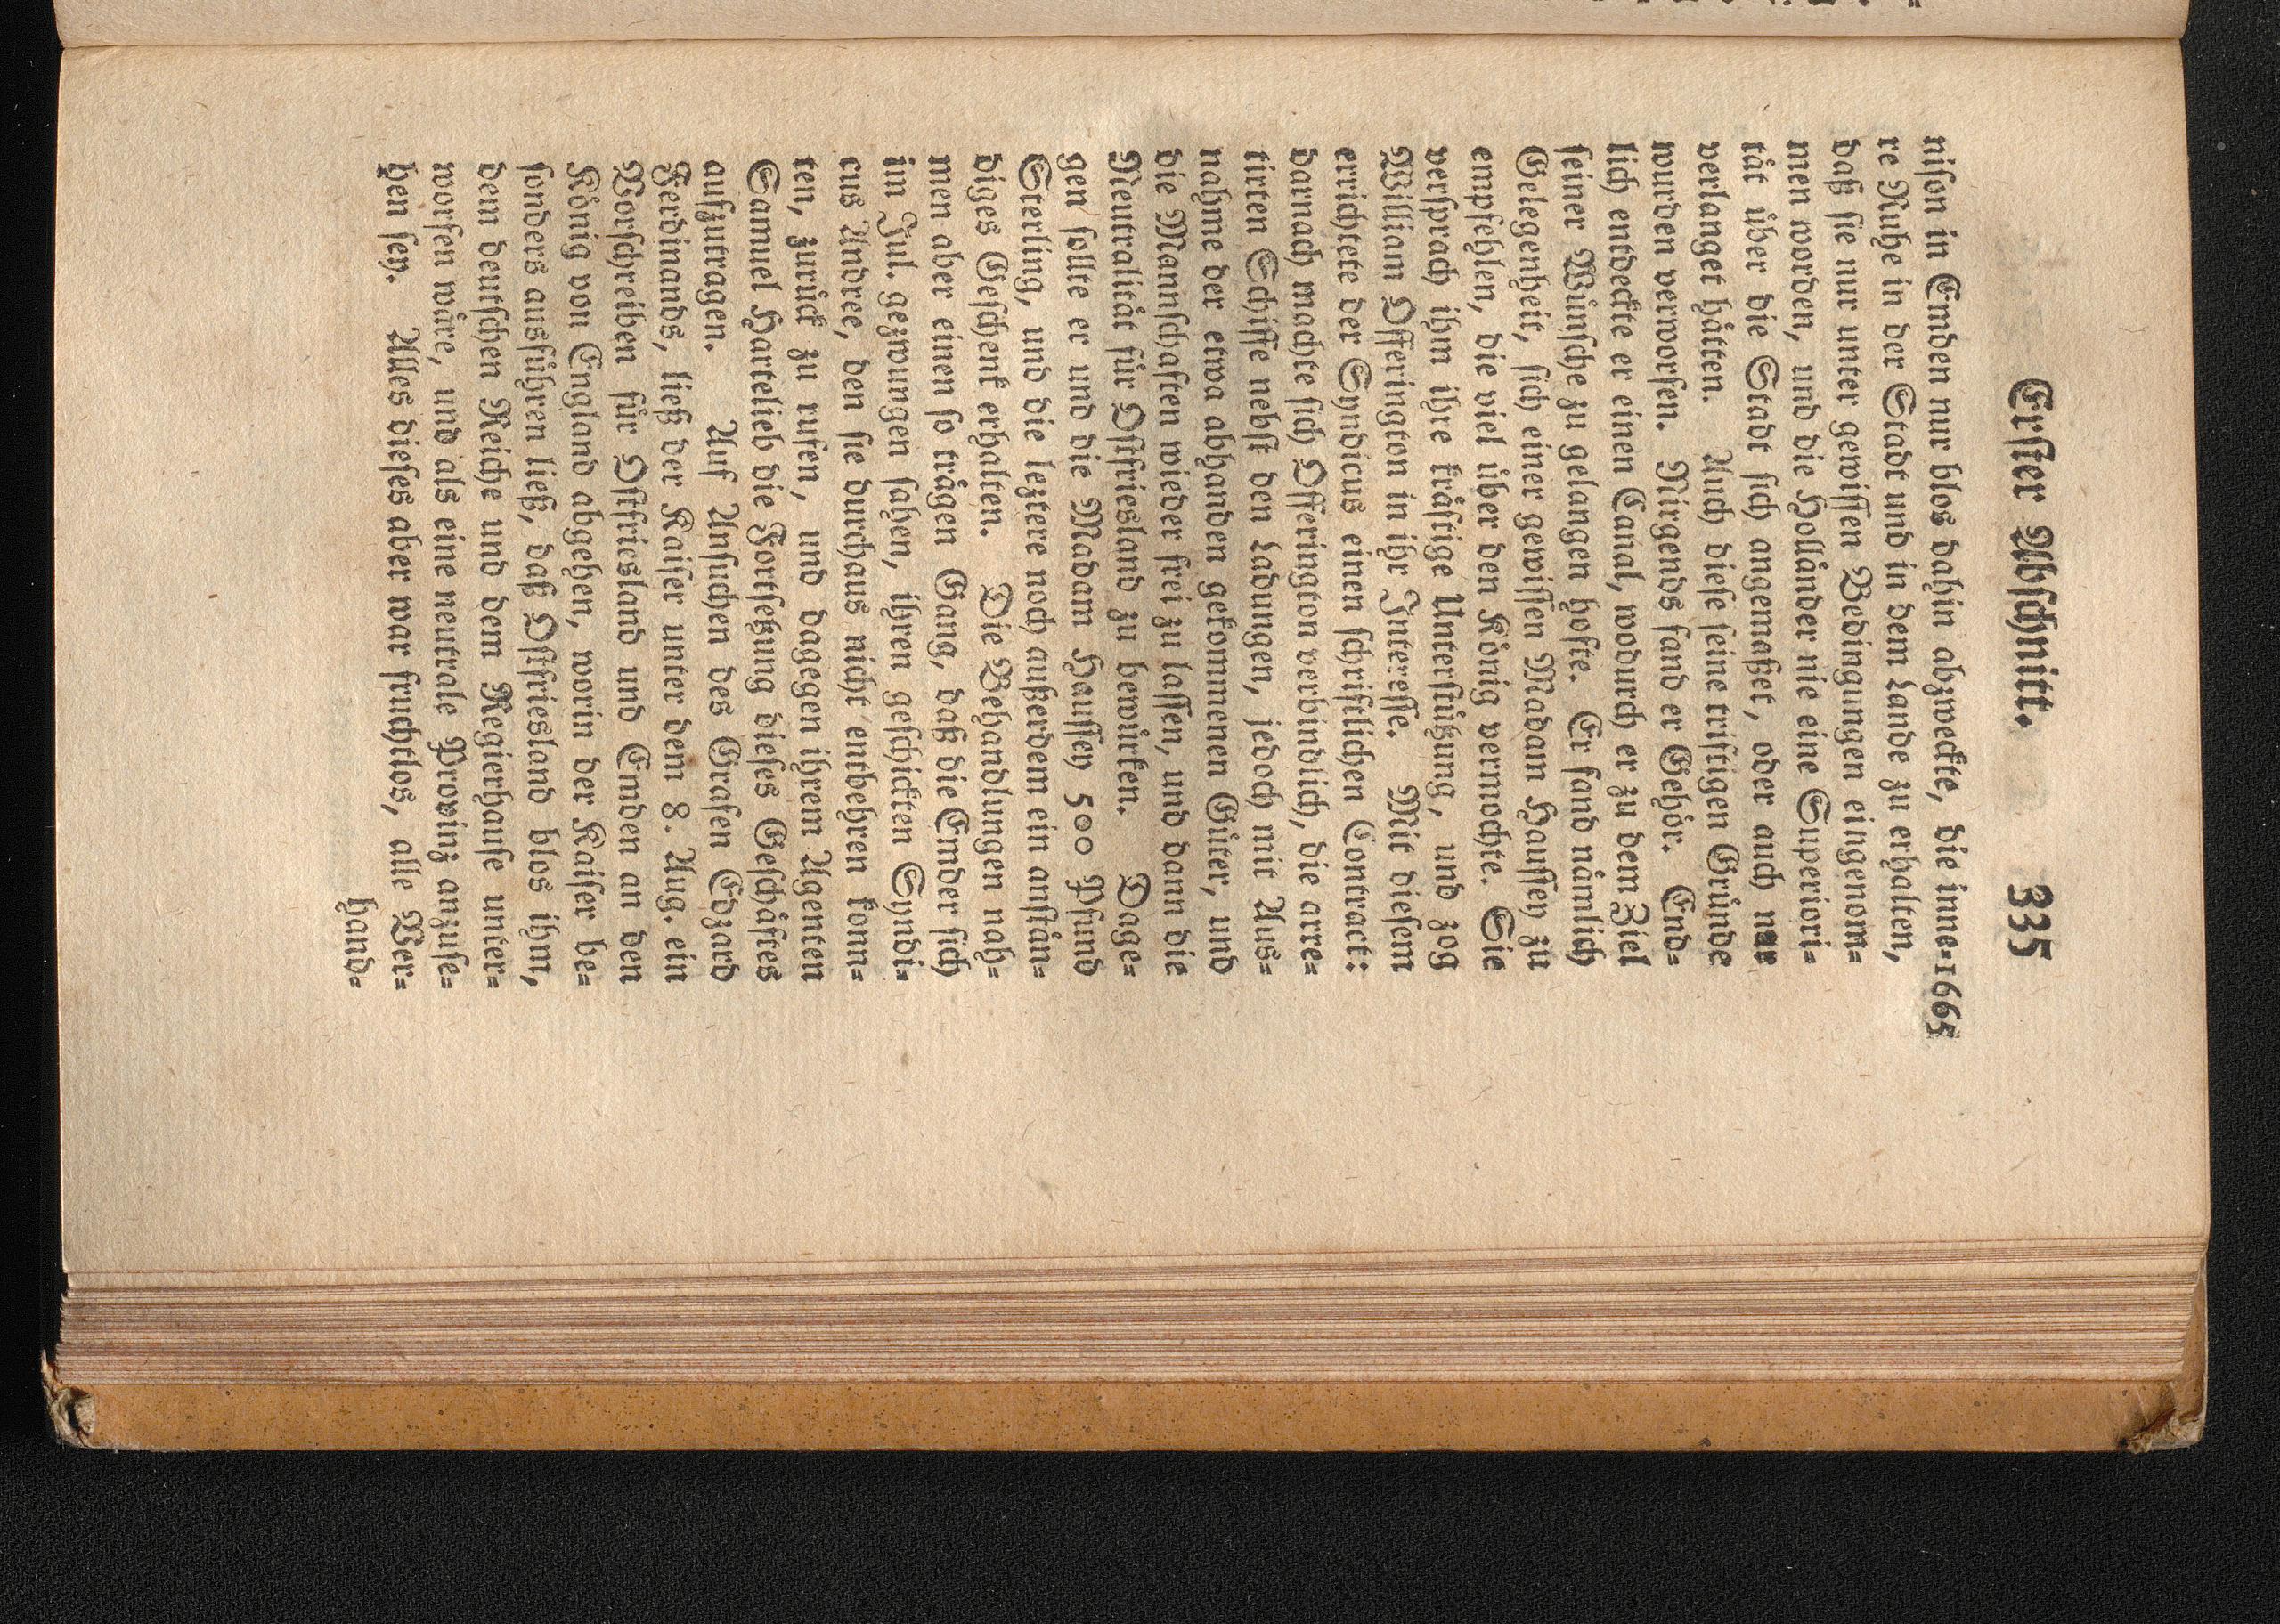 Erſter Abſchnitt. 335
niſon in Emden nur blos dahin abzweckte, die inne- 1665
re Ruhe in der Stadt und in dem Lande zu erhalten,
daß ſie nur unter gewiſſen Bedingungen eingenom-
men worden, und die Holländer nie eine Superiori-
tät über die Stadt ſich angemaßet, oder auch nur
verlanget hätten. Auch dieſe ſeine triftigen Gründe
wurden verworfen. Nirgends fand er Gehör. End-
lich entdeckte er einen Canal, wodurch er zu dem Ziel
ſeiner Wünſche zu gelangen hofte. Er fand nämlich
Gelegenheit, ſich einer gewiſſen Madam Hauſſey zu
empfehlen, die viel über den König vermochte. Sie
verſprach ihm ihre kräftige Unterſtützung, und zog
William Offerington in ihr Intereſſe. Mit dieſem
errichtete der Syndicus einen ſchriftlichen Contract:
darnach machte ſich Offerington verbindlich, die arre-
tirten Schiffe nebſt den Ladungen, jedoch mit Aus-
nahme der etwa abhanden gekommenen Güter, und
die Mannſchaften wieder frei zu laſſen, und dann die
Neutralität für Oſtfriesland zu bewürken. Dage-
gen ſollte er und die Madam Hauſſey 500 Pfund
Sterling, und die leztere noch außerdem ein anſtän-
diges Geſchenk erhalten. Die Behandlungen nah-
men aber einen ſo trägen Gang, daß die Emder ſich
im Jul. gezwungen ſahen, ihren geſchickten Syndi-
cus Andree, den ſie durchaus nicht entbehren konn-
ten, zurück zu rufen, und dagegen ihrem Agenten
Samuel Hartelieb die Fortſetzung dieſes Geſchäftes
aufzutragen. Auf Anſuchen des Grafen Edzard
Ferdinands, ließ der Kaiſer unter dem 8. Aug. ein
Vorſchreiben für Oſtfriesland und Emden an den
König von England abgehen, worin der Kaiſer be-
ſonders ausführen ließ, daß Oſtfriesland blos ihm,
dem deutſchen Reiche und dem Regierhauſe unter-
worfen wäre, und als eine neutrale Provinz anzuſe-
hen ſey. Alles dieſes aber war fruchtlos, alle Ver-
hand-